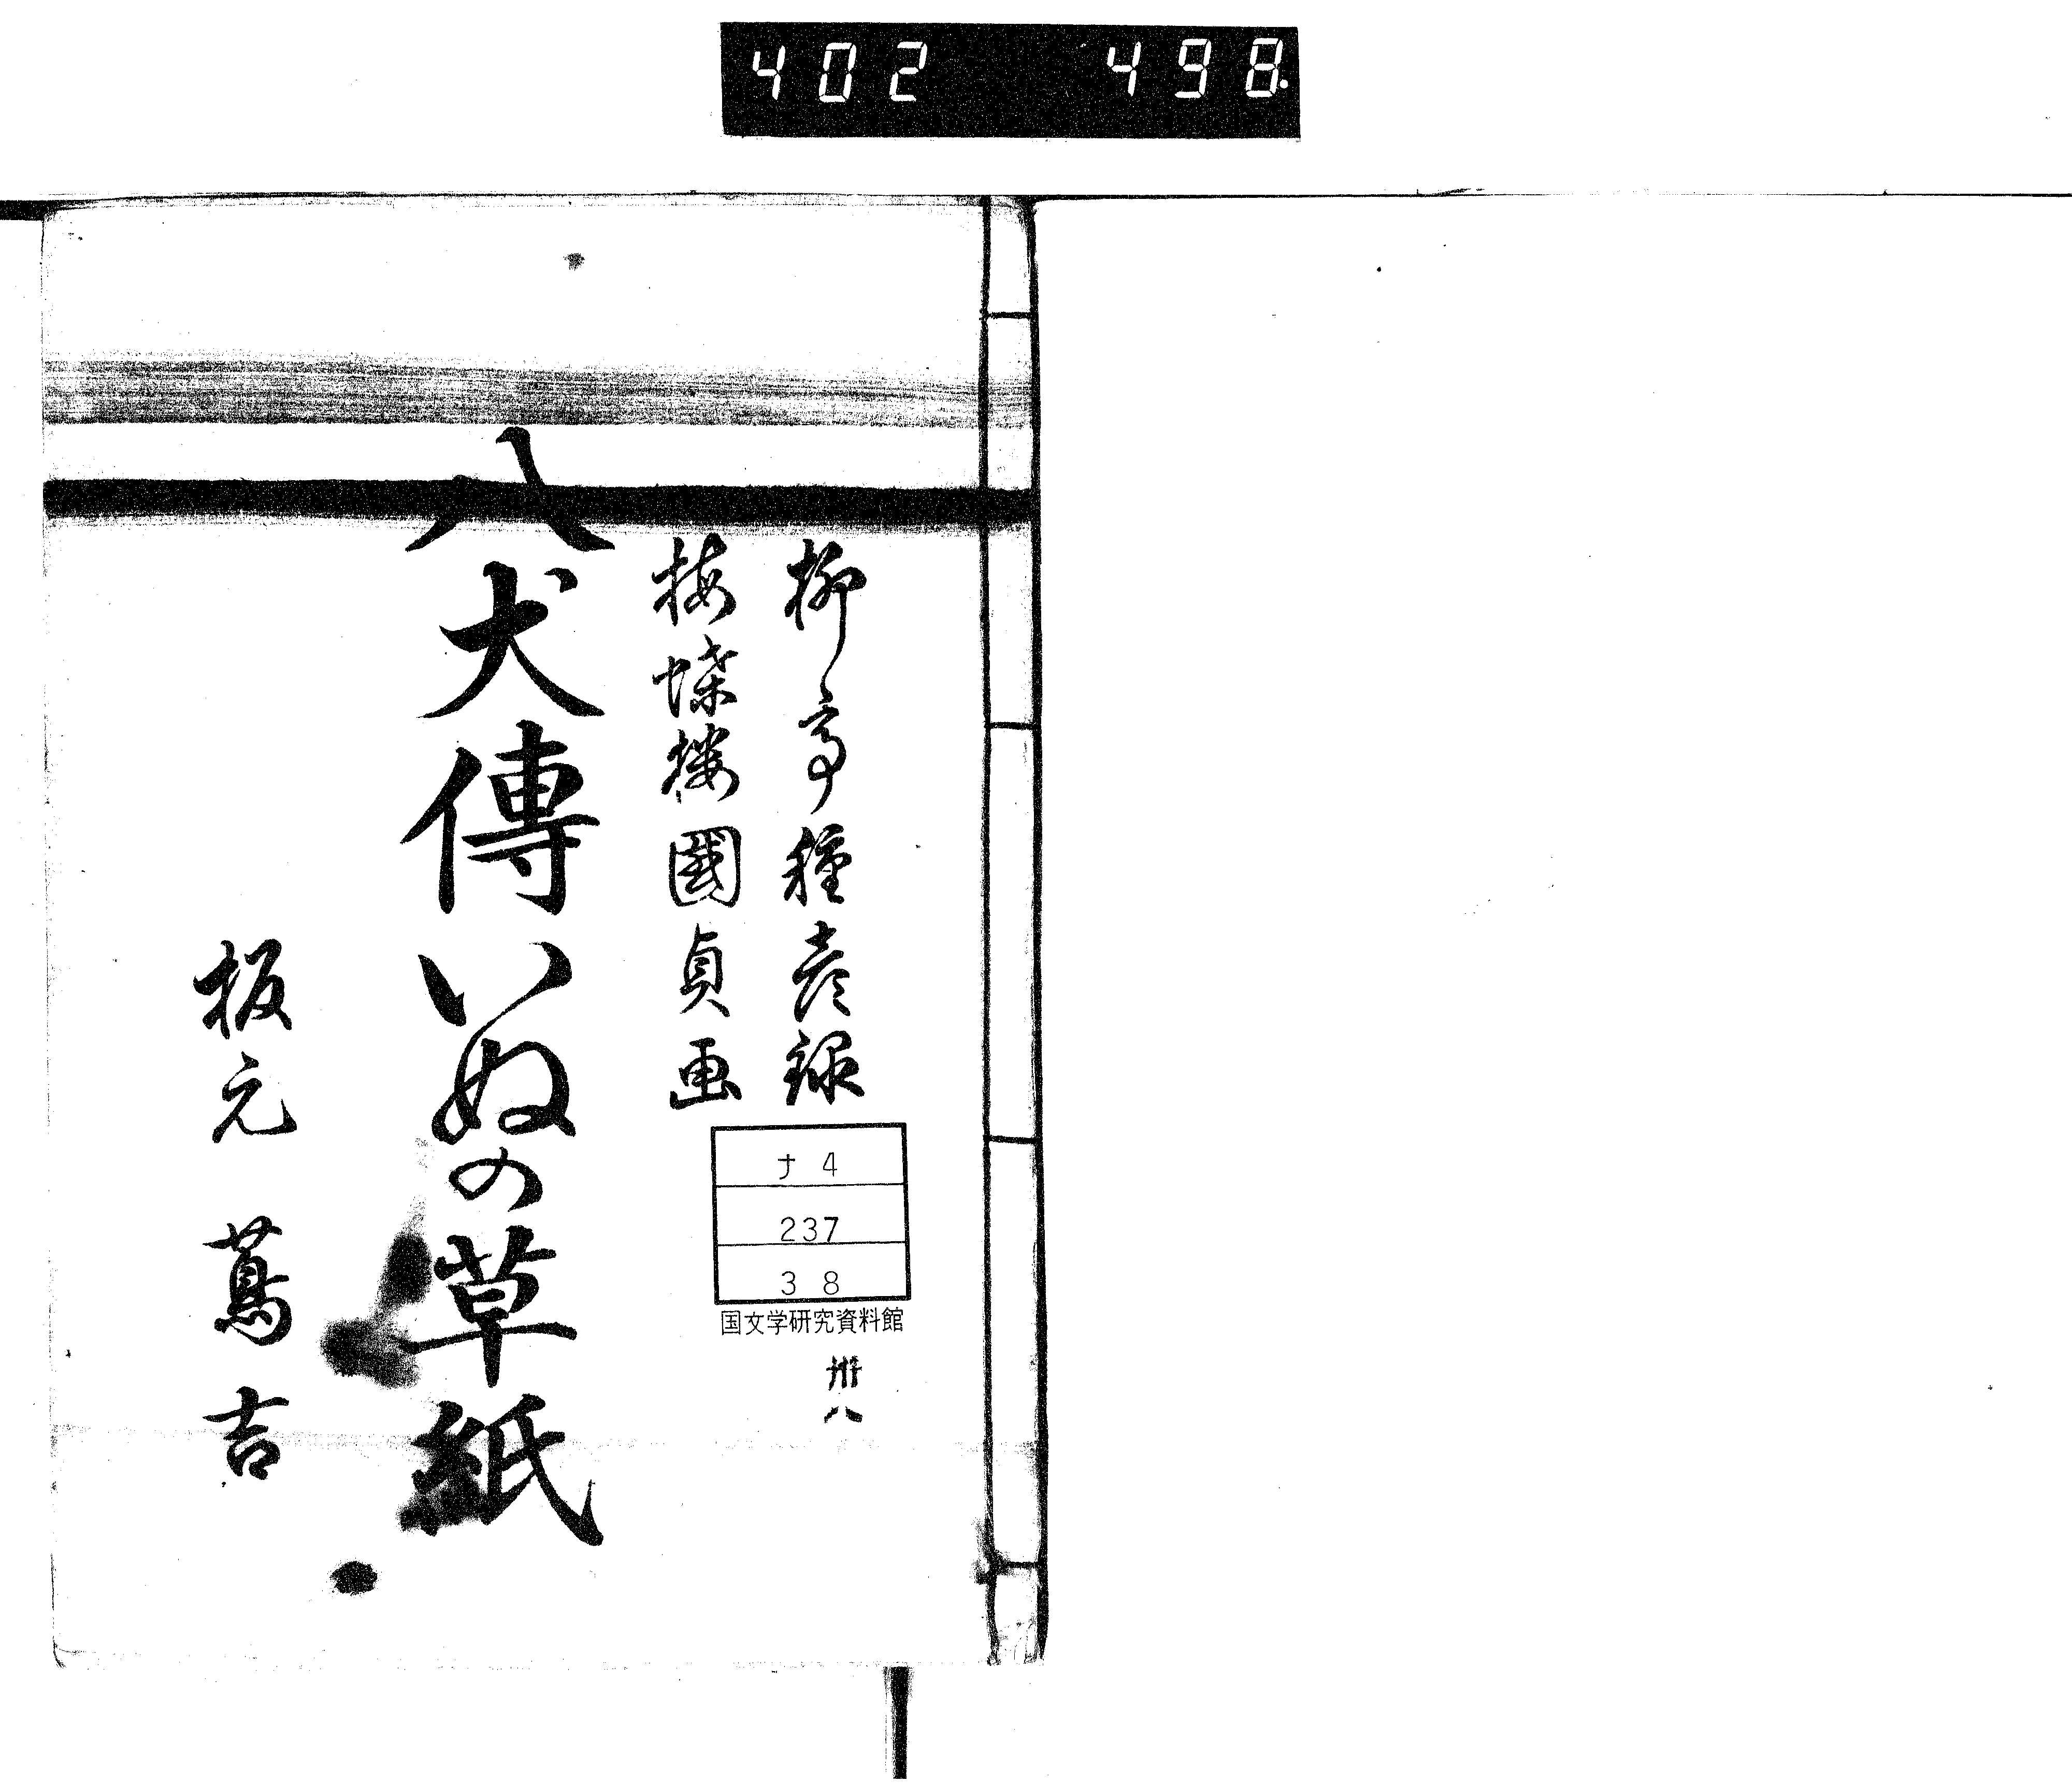 402 498
柳亭種彦録
梅蝶楼國貞画
八犬傳いぬの草紙
板元 蔦吉
ナ4
237
38
国文学研究資料館
卅八